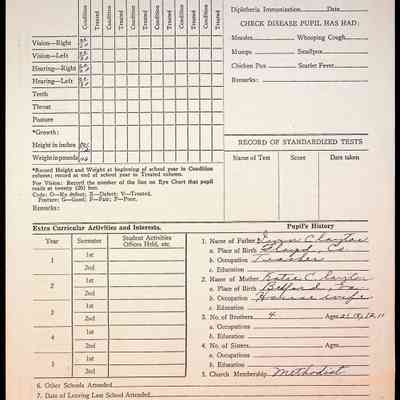 Condition Treated Condition Treated Condition Treated Condition Treated Condition Treated Condition
Diptheria Immunization Date
CHECK DISEASE PUPIL HAS HAD:
Measles Whooping Cough
Mumps Smallpox
Chicken Pox Scarlet Fever
Remarks:
Vision—Right
Vision—Left
Hearing—Right
Hearing—Left
Teeth
Throat
Posture
*Growth:
Height in inches
Weight in pounds
RECORD OF STANDARDIZED TESTS
Name of Test Score Date taken
*Record Height and Weight at beginning of school year in Condition
column; record at end of school year in Treated column.
For Vision: Record the number of the line on Eye Chart that pupil
reads at twenty (20) feet.
Code: O—No defect; X—Defect; V—Treated.
Posture: G—Good; F—Fair; P—Poor.
Remarks:
Extra Curricular Activities and Interests.
Year Semester Student Activities
Offices Held, etc.
1 1st
2nd
2 1st
2nd
3 1st
2nd
4 1st
2nd
5 1st
2nd
6. Other Schools Attended
7. Date of Leaving Last School Attended
Pupil's History
1. Name of Father C Clayton
a. Place of Birth Floyd, Co
b. Occupation Teacher
c. Education
2. Name of Mother Katie C. Clayton
a. Place of Birth Bedford,
b. Occupation House wife
c. Education
3. No. of Brothers 4 Ages
a. Occupations
b. Education
4. No. of Sisters Ages
a. Occupations
b. Education
5. Church Membership Methodist